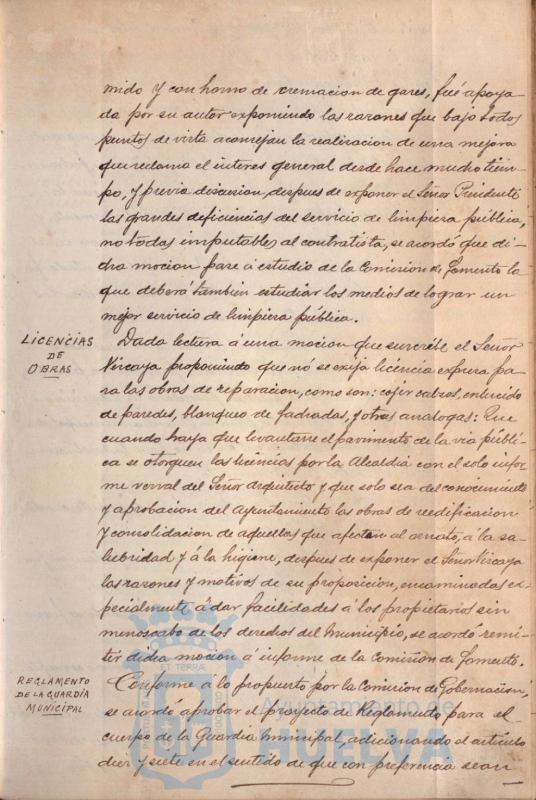 mido y con horno de cremacion de gases, fué apoya-
da por su autor exponiendo las razones que bajo todos
puntos de vista aconsejan la realizacion de una mejora
que reclama el interes general desde hace mucho tiem-
po, y previa discusion, despues de exponer el Señor Presidente
las grandes deficiencias del servicio de limpieza pública,
no todas imputables al contratista, se acordó que di-
cha mocion pase á estudio de la Comision de Fomento la
que deberá tambien estudiar los medios de lograr un
mejor servicio de limpieza pública.
LICENCIAS
DE
OBRAS
Dada lectura á una mocion que suscribe el Señor
Vizcaya proponiendo que no se exija licencia expresa pa-
ra las obras de reparacion, como son: cojer cabros, enlucido
de paredes, blanqueo de fachadas, y otras analogas: Que
cuando haya que levantarse el pavimento de la via públi-
ca se otorguen las licencias por la Alcaldia con el solo infor-
me verval del Señor Arquitecto y que solo sea del conocimiento
y aprobacion del Ayuntamiento las obras de reedificacion
y consolidacion de aquellas que afecten al ornato, á la sa-
lubridad y á la higiene, despues de exponer el Señor Vizcaya
las razones y motivos de su proposicion, encaminadas es-
pecialmente á dar facilidades á los propietarios sin
menoscabo de los derechos del Municipio, se acordó remi-
tir dicha mocion á informe de la Comision de Fomento.
REGLAMENTO
DE LA GUARDIA
MUNICIPAL
Conforme á lo propuesto por la Comision de Gobernacion,
se acordó aprobar el proyecto de Reglamento para el
cuerpo de la Guardia Municipal, adicionando el artículo
diez y siete en el sentido de que con preferencia sean
Ayuntamiento de
HUELVA